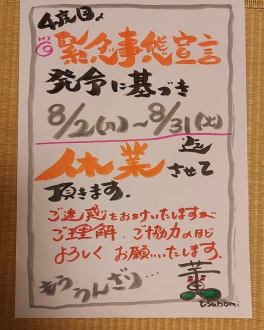 4度目の
緊急事態宣言
発令に基づき
8/2(月)〜8/31(火)
迄
休業させて
頂きます.
ご迷惑をおかけいたしますが
ご理解、ご協力のほど
よろしくお願いいたします.
もううんざり…
tsubomi